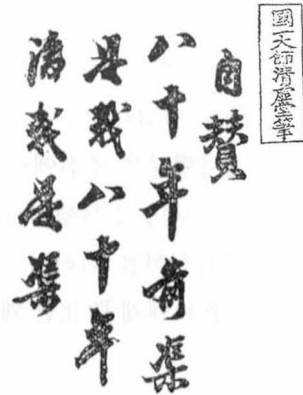 國一大師淸虛筆
自賛
八十年前渠
是我八十年
後我是渠